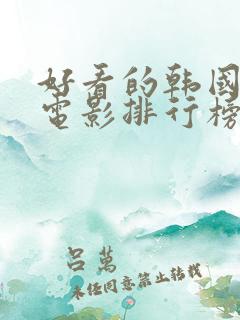 好看的韩國
電影排行榜
吕萬
未经同意禁止转载